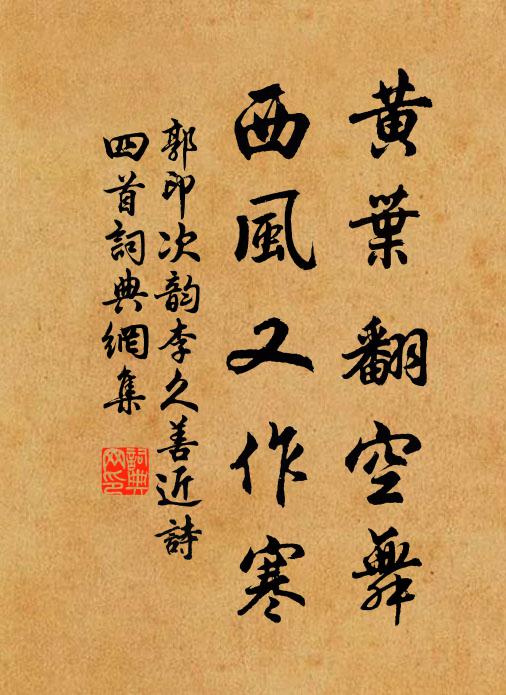 黃葉翻空舞
西風又作寒
郭印次韵李久善近詩
四首詞典網集
詞典
網印